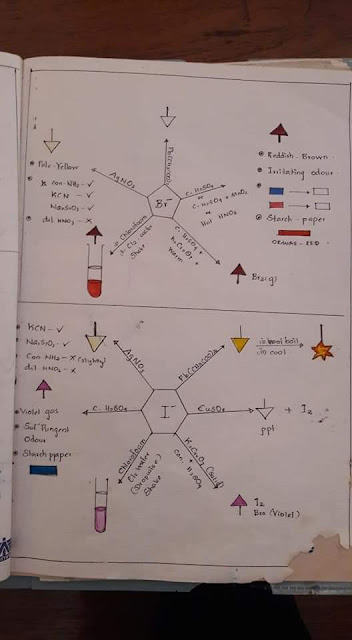 Pale-Yellow
con-NH3 - ✓
KCN - ✓
Na2S2O3 - ✓
dil HNO3 - ✗
AgNO3
Br-
C. H2SO4
or
C. H2SO4 + MnO2
or
Hot HNO3
C. H2SO4 +
K2Cr2O7 +
Warm
Chloroform
Cl2 water
Shake
Reddish-Brown
Irritating odour
Starch-paper
ORANGE-RED
Br2(g)
KCN - ✓
Na2S2O3 - ✓
Con NH3 - ✗ (slightly)
dil HNO3 - ✗
Violet gas
Pungent
Odour
Starch paper
AgNO3
Pb(CH3COO)2
i) boil
ii) cool
C. H2SO4
I-
CuSO4
+ I2
ppt
Chloroform
Cl2 water
(Dropwise)
Shake
K2Cr2O7 (solid)
Con. H2SO4
I2
(Violet)